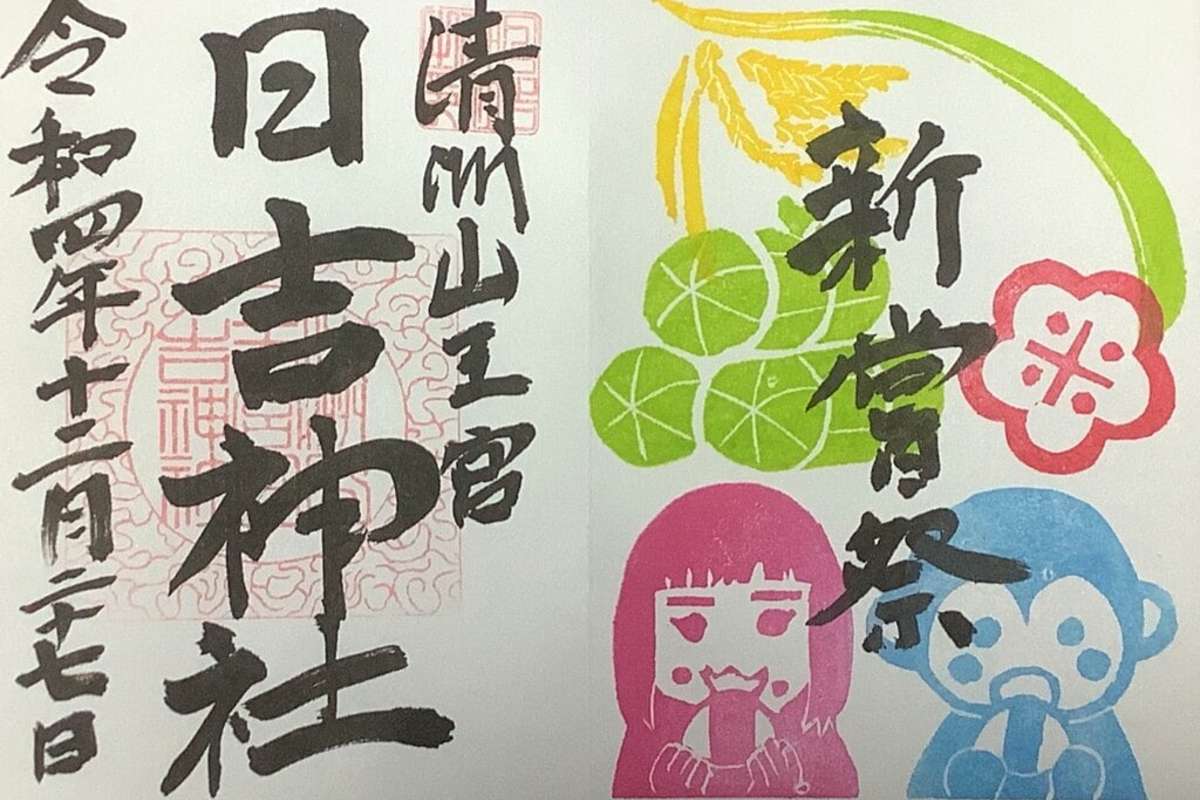 新嘗祭
清洲山王宮
日吉神社
令和四年十二月二十七日